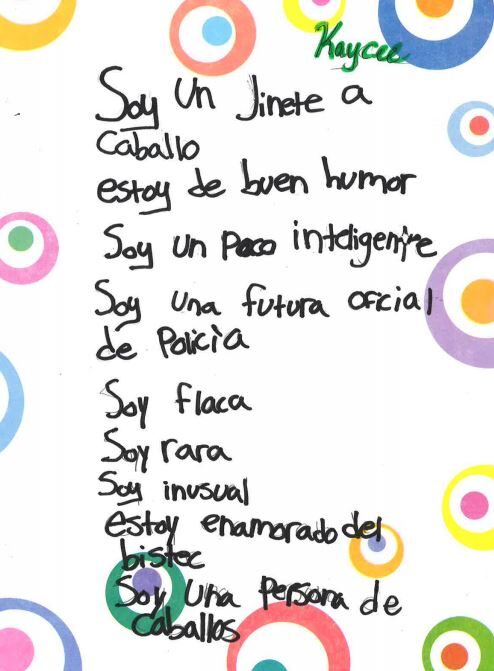 Kaycee
Soy un Jinete a
caballo
estoy de buen humor
Soy un Poco inteligente
Soy una futura oficial
de Policìa
Soy flaca
Soy rara
Soy inusual
estoy enamorado del
bistec
Soy una Persona de
caballos